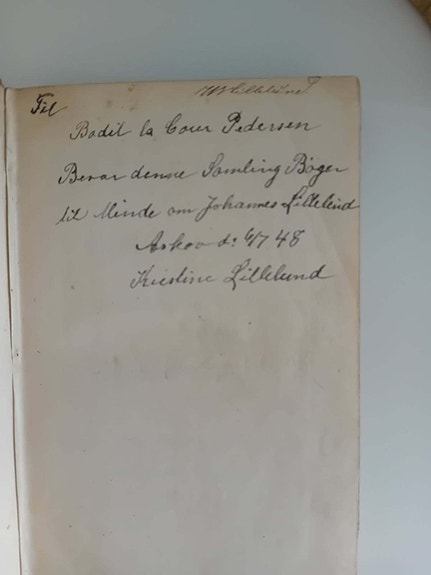 Til
Bodil la Cour Pedersen
Bevar denne Samling Bøger
til Minde om Johannes Lillelund
Askov d: 6/7 48
Kirstine Lillelund